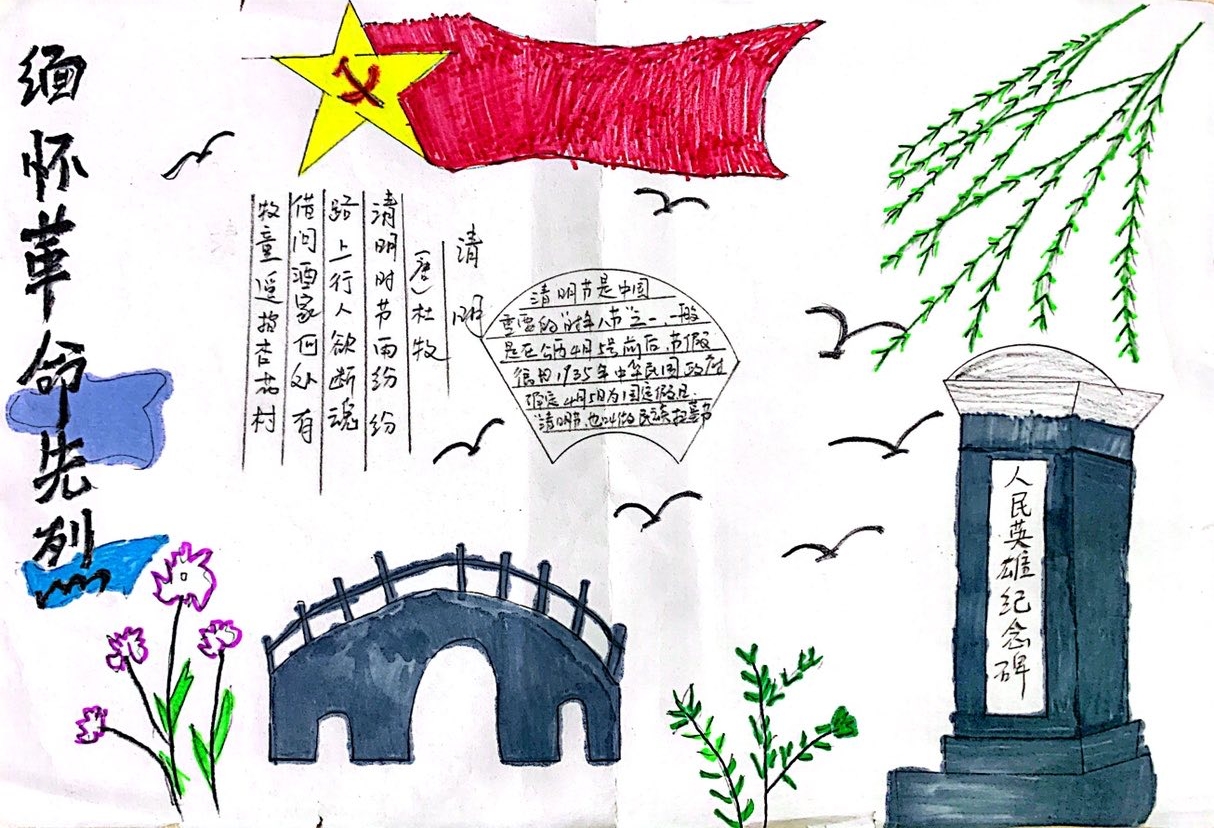 缅怀革命先列
清明
（唐）杜牧
清明时节雨纷纷
路上行人欲断魂
借问酒家何处有
牧童遥指杏花村
清明节是中国
重要的"传人节"之一,一般
是在公历4月5号前后,节假
很约1935年中华民国政府
确定4月5日为国定假日,
清明节,也叫做民族扫墓节
人民英雄纪念碑